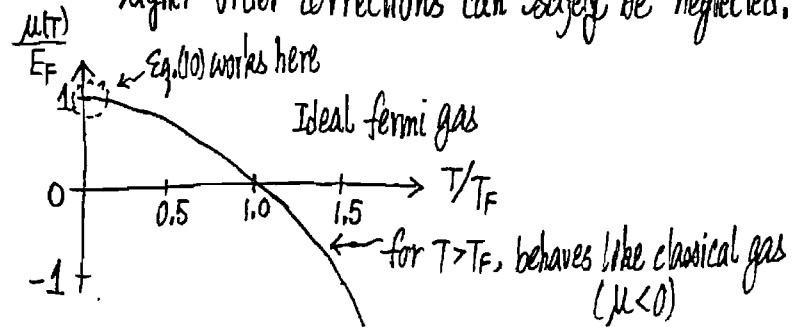 higher order corrections can safely be neglected.
μ(T)
E_F
Eq.(10) works here
1
Ideal fermi gas
T/T_F
0
0.5
1.0
1.5
for T>T_F, behaves like classical gas
-1
(μ<0)